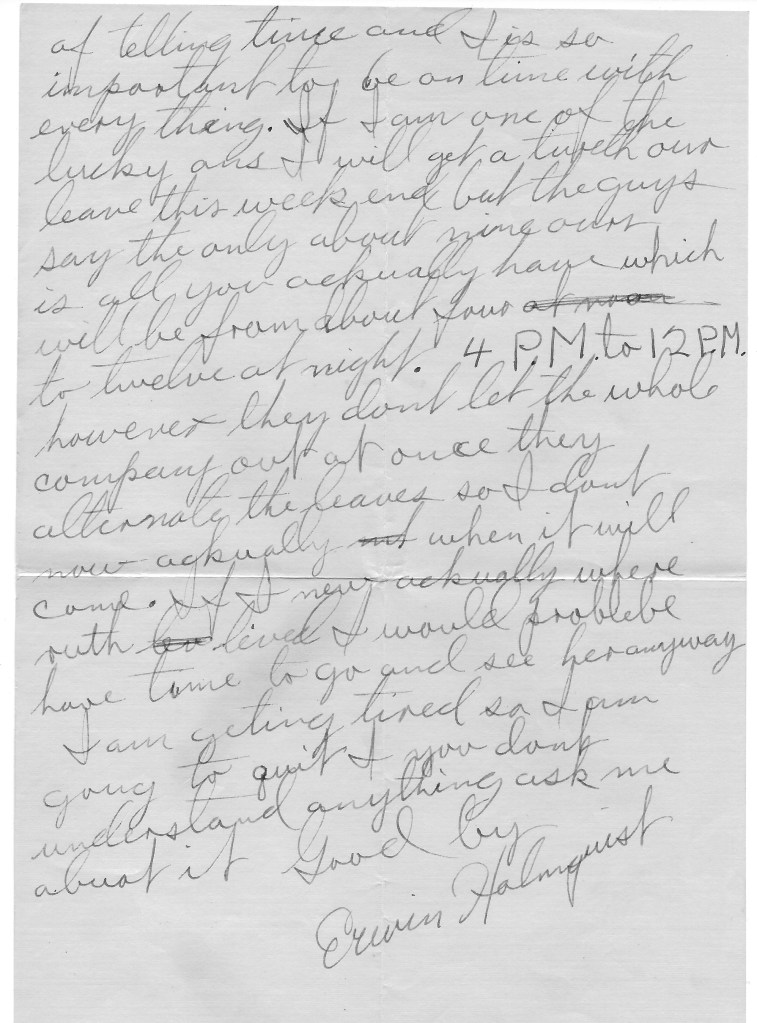 of telling time and I is so
important to be on time with
every thing. If I am one of the
lucky ons I will get a twelth our
leave this week end but the guys
say the only about nine ours
is all you ackually have which
will be from about four at noon
to twelve at night. 4 P.M. to 12 P.M.
however they dont let the whole
company out at once they
alternate the leaves so I dont
now ackually when it will
come. If I new ackually where
ruth lived I would problebe
have time to go and see her anyway
I am geting tired so I am
goug to quit I you dont
understand anything ask me
abuot it Good by
Erwin Holmquist